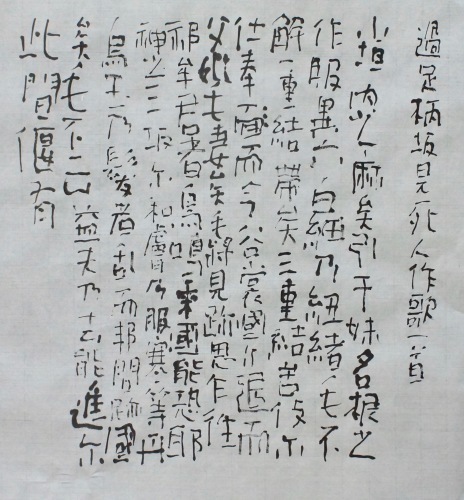 過足柄坂見死人作歌一首
小垣内之麻矣引干妹名根之
作服異六白細乃紐緒毛不
解一重結帶矣三重結苦伎尓
仕奉而今谷裳國尓退而
父妣毛妻矣毛將見跡思乍徃
祁牟君者鳥鳴東國能恐耶
神之三坂尓和膚乃服寒等丹
烏玉乃髪者乱而邦問跡國
矣毛不云益夫乃去能進尓
此間偃有